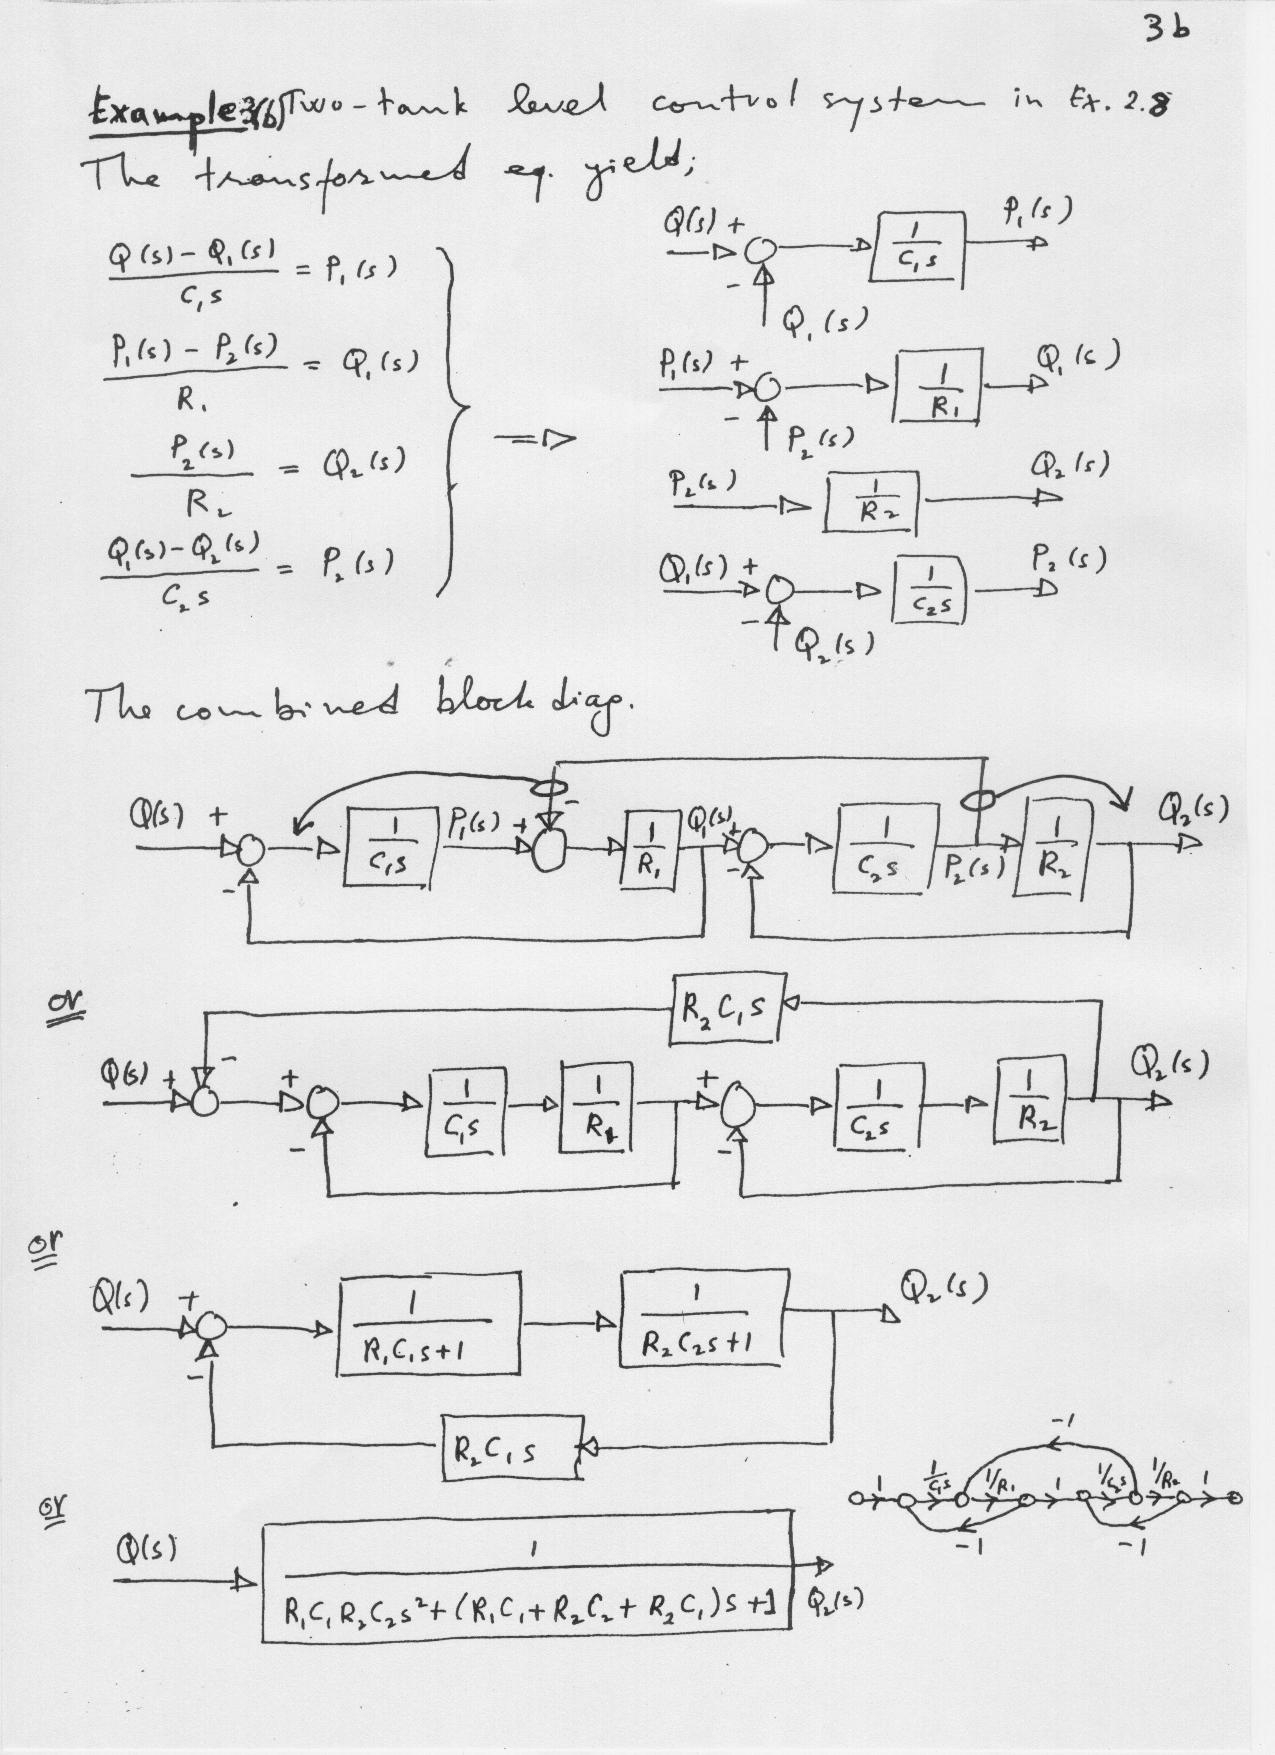 3b
Example 3(b) Two-tank level control system in Ex. 2.8
The transformed eq. yield;
Q(s) - Q₁(s) / C₁s = P₁(s)
P₁(s) - P₂(s) / R₁ = Q₁(s)
P₂(s) / R₂ = Q₂(s)
Q₁(s) - Q₂(s) / C₂s = P₂(s)
⇒
Q(s) + 1/C₁s P₁(s)
- Q₁(s)
P₁(s) + 1/R₁ Q₁(s)
- P₂(s)
P₂(s) 1/R₂ Q₂(s)
Q₁(s) + 1/C₂s P₂(s)
- Q₂(s)
The combined block diag.
Q(s) + 1/C₁s P₁(s) + - 1/R₁ Q₁(s) + 1/C₂s P₂(s) 1/R₂ Q₂(s)
- -
or
R₂C₁s
Q(s) + - + 1/C₁s 1/R₁ + 1/C₂s 1/R₂ Q₂(s)
- -
or
Q(s) + 1/R₁C₁s+1 1/R₂C₂s+1 Q₂(s)
-
R₂C₁s
-1
1 1/C₁s 1/R₁ 1 1/C₂s 1/R₂ 1
-1 -1
or
Q(s) 1 / R₁C₁R₂C₂s² + (R₁C₁ + R₂C₂ + R₂C₁)s + 1 Q₂(s)